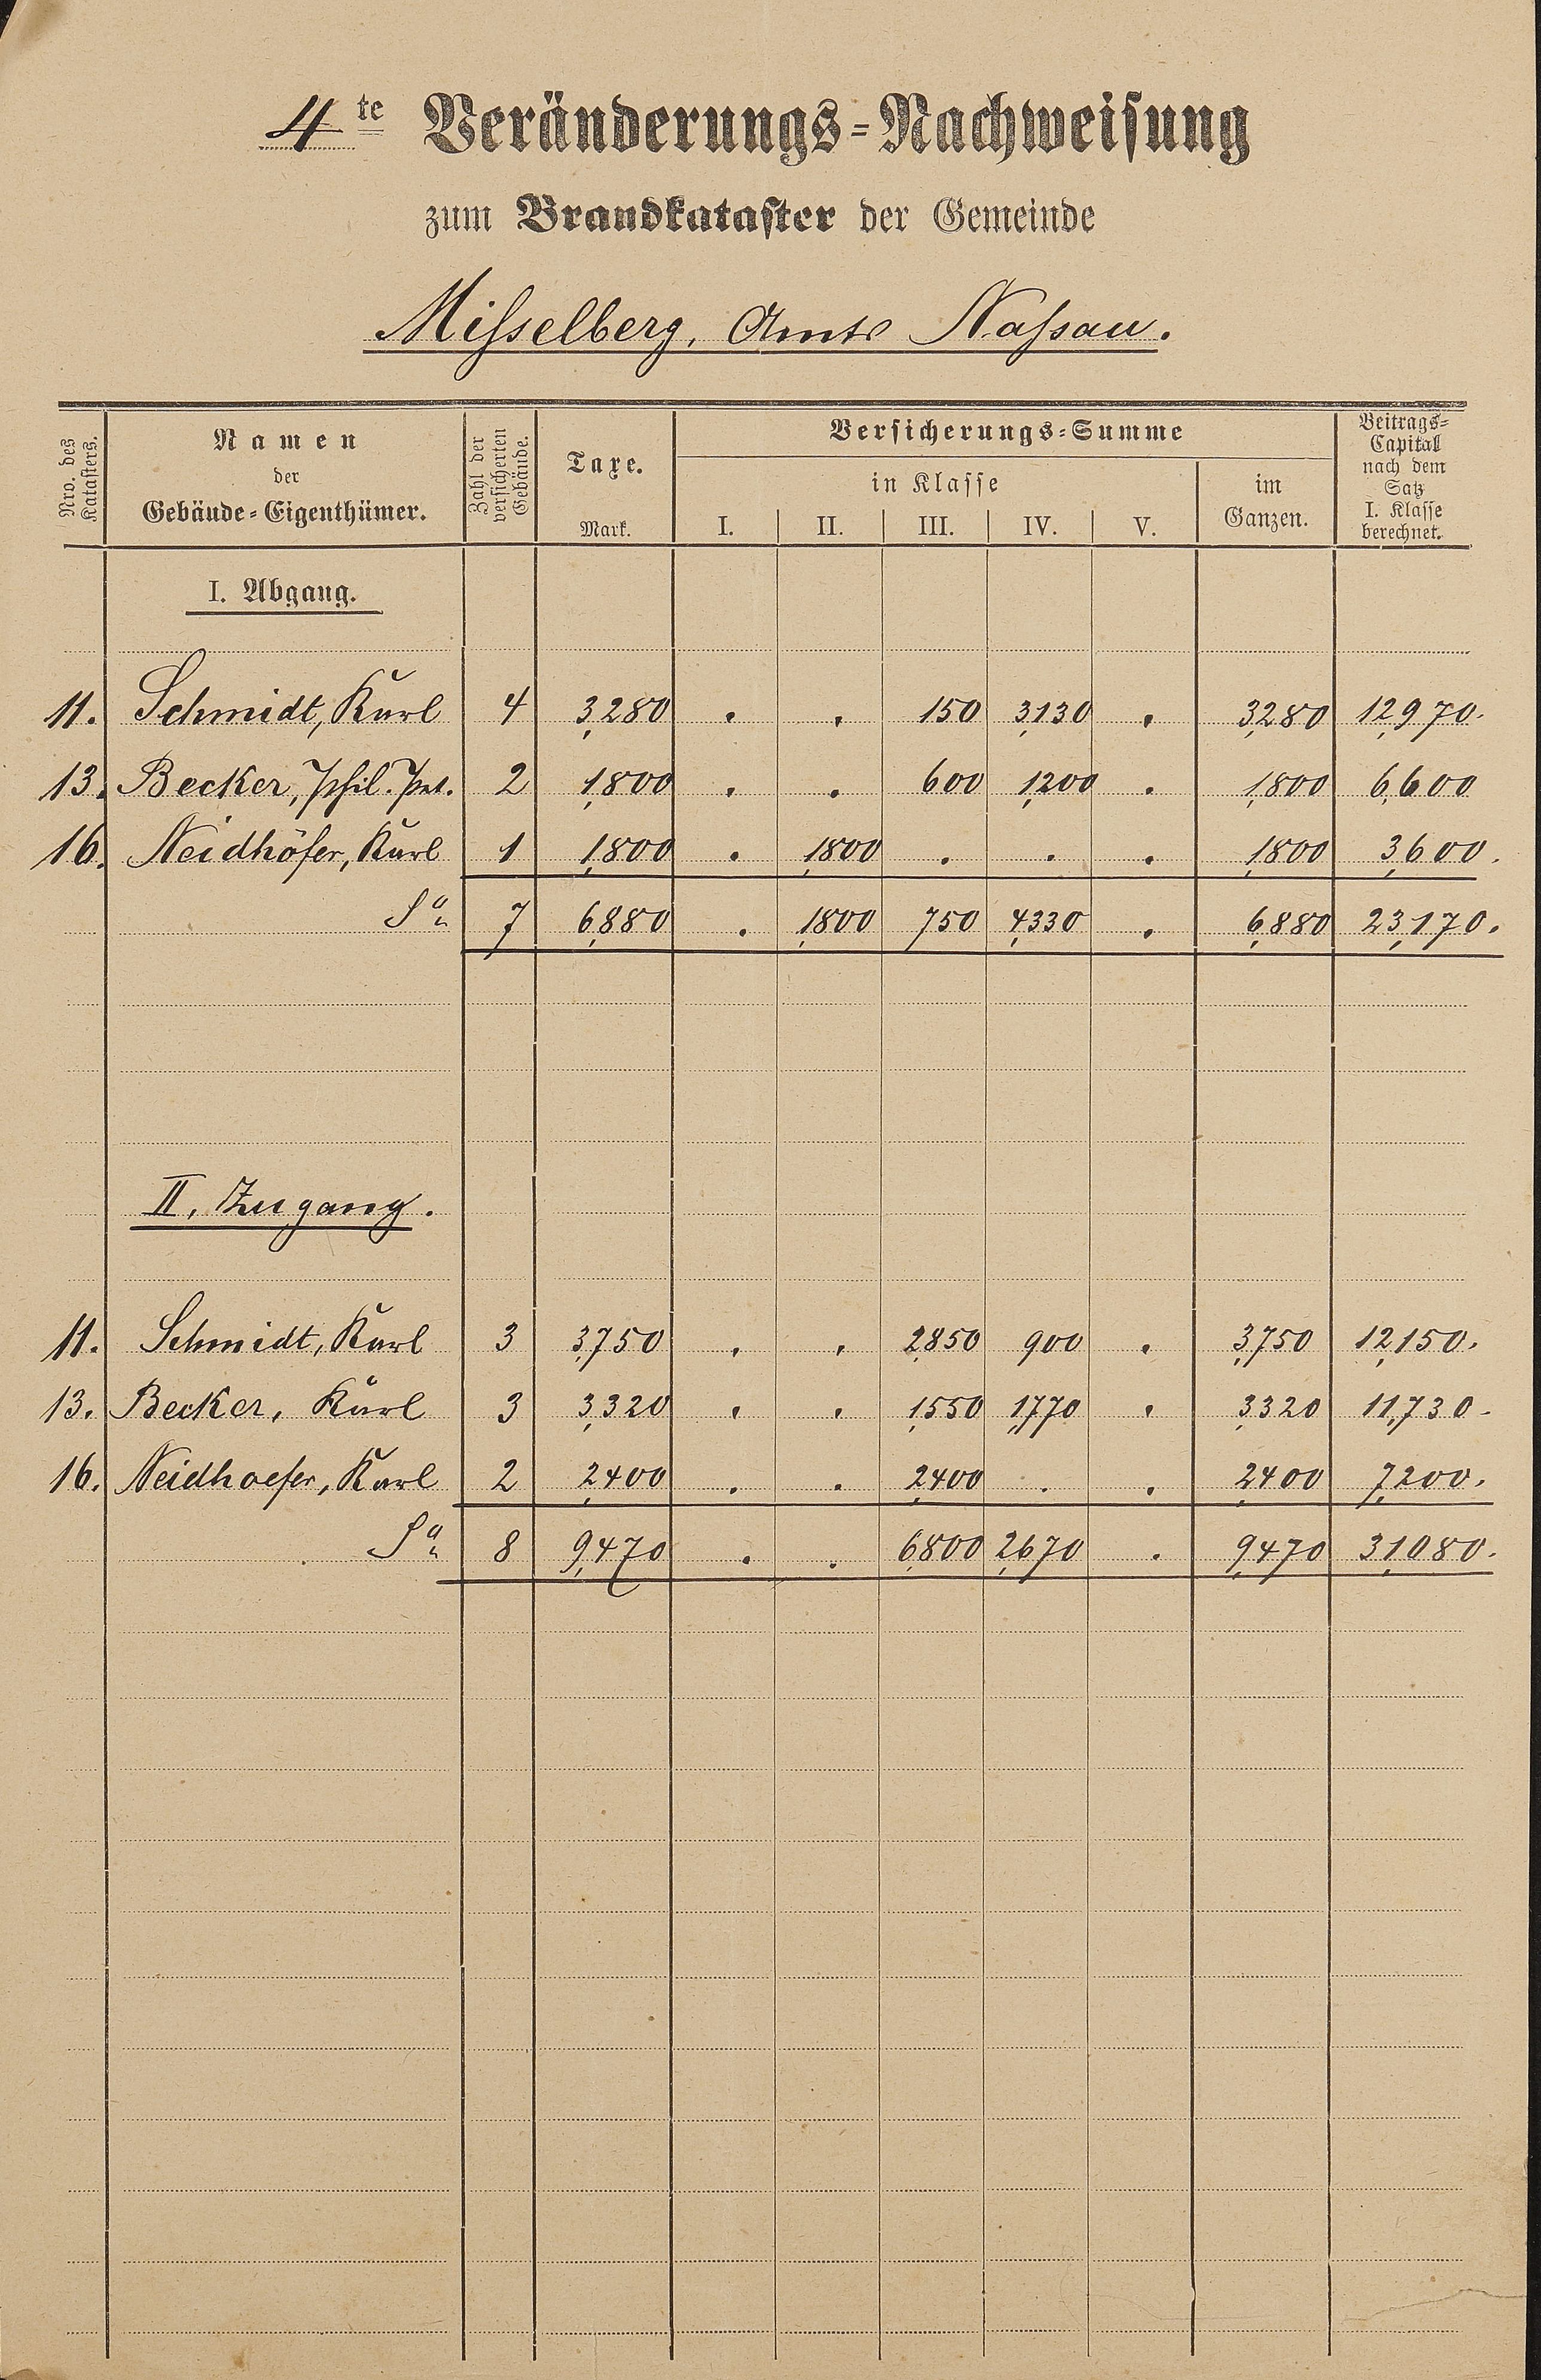 4te Veränderungs-Nachweisung
zum Brandkataster der Gemeinde
Misselberg, Amts Nassau.
Nro. des Katasters.
Namen der Gebäude-Eigenthümer.
Zahl der versicherten Gebäude.
Taxe. Mark.
Versicherungs-Summe
in Klasse
I. II. III. IV. V.
im Ganzen.
Beitrags-Capital nach dem Satz I. Klasse berechnet.
I. Abgang.
11. Schmidt, Karl 4 3,280 . . 150 3,130 . 3,280 12,970.
13. Becker, Phil. 2 1,800 . . 600 1,200 . 1,800 6,600
16. Neidhöfer, Karl 1 1,800 . 1,800 . . . 1,800 3,600.
Sa 7 6,880 . 1,800 750 4,330 . 6,880 23,170.
II. Zugang.
11. Schmidt, Karl 3 3,750 . . 2,850 900 . 3,750 12,150.
13. Becker, Karl 3 3,320 . . 1,550 1,770 . 3,320 11,730.
16. Neidhoefer, Karl 2 2,400 . . 2,400 . . 2,400 7,200.
Sa 8 9,470 . . 6,800 2,670 . 9,470 31,080.